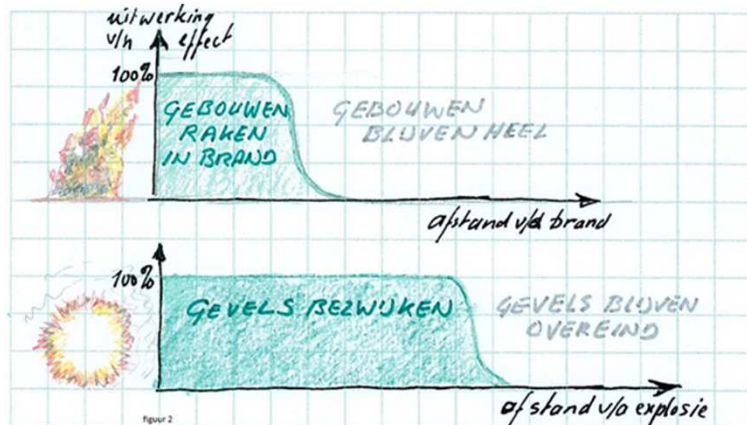 uitwerking
v/h effect
100%
GEBOUWEN
RAKEN
IN BRAND
GEBOUWEN
BLIJVEN HEEL
afstand v/d brand
100%
GEVELS BEZWIJKEN
GEVELS BLIJVEN
OVEREIND
afstand v/a explosie
Figuur 2